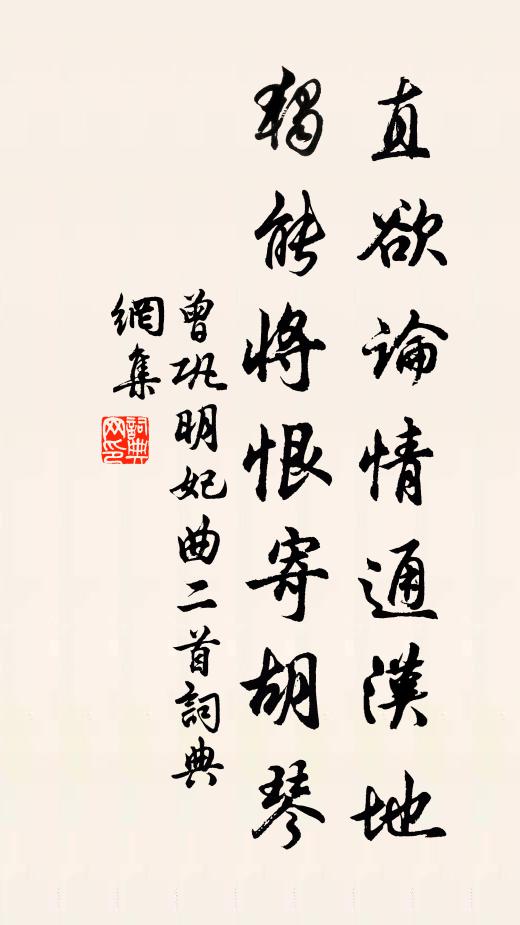 直欲論情通漢地
獨能將恨寄胡琴
曾鞏明妃曲二首詞典
網集
詞典
网印